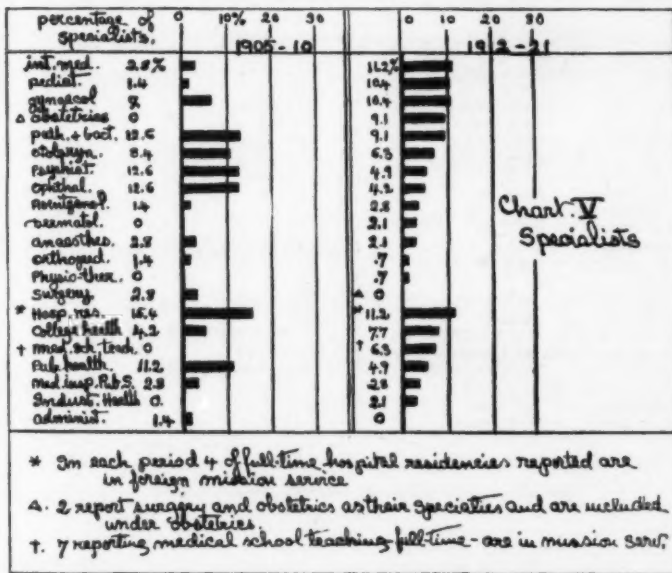 percentage of 0 10% 20 30 0 10 20 30
specialists. 1905-10 1912-21
int. med. 2.8% 11.2%
pediat. 1.4 10.4
gynaecol 7 10.4
△ obstetrics 0 9.1
path. + bact. 12.6 9.1
otolaryn. 8.4 6.3
Psychiat. 12.6 4.9
Ophthal. 12.6 4.2
Roentgenol. 1.4 2.8
Dermatol. 0 2.1
anaesthes. 2.8 2.1
orthoped. 1.4 .7
Physio-ther. 0 .7
Surgery 2.8 △ 0
* Hosp. res. 15.4 * 11.2
College health 4.2 7.7
† med. sch. teach. 0 † 6.3
Pub. health. 11.2 4.9
med. insp. Pub. S. 2.8 2.8
Indust. Health 0. 2.1
administ. 1.4 0
Chart. V
Specialists
* In each period 4 of full-time hospital residencies reported are
in foreign mission service
△. 2 report surgery and obstetrics as their specialties and are included
under obstetrics.
†. 7 reporting medical school teaching-full-time-are in mission serv.